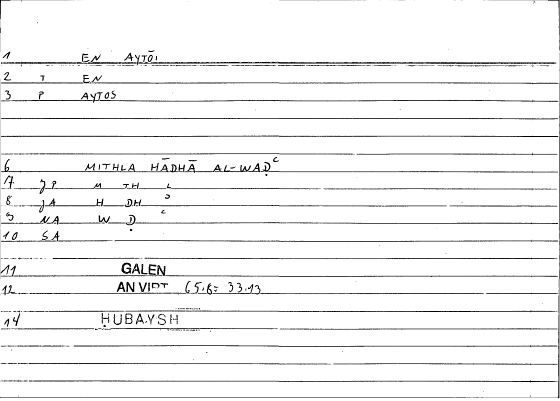 1 EN AYTŌI
2 T EN
3 P AYTOS
6 MITHLA HĀDHĀ AL-WAḌʿ
7 JP M TH L
8 JA H DH ʾ
9 NA W Ḍ ʿ
10 SA
11 GALEN
12 AN VIRT 65.8= 33.13
14 ḤUBAYSH